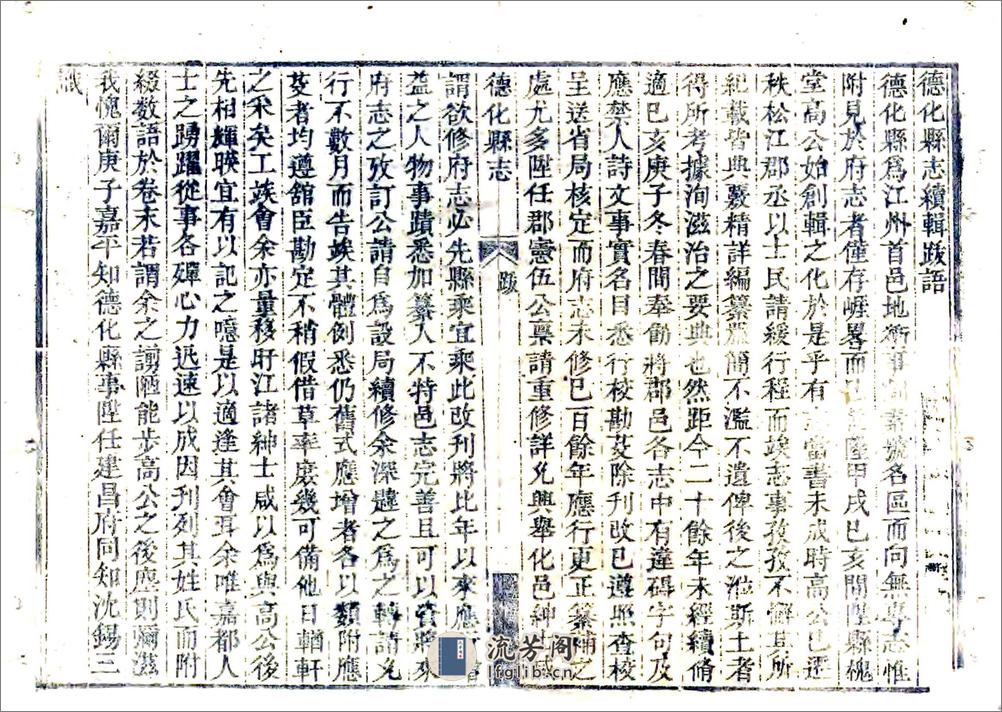 德化縣志續輯跋語
德化縣爲江州首邑地衝事 素號名區而向無專志惟
附見於府志者僅存崕畧而已 隆甲戌已亥間陞縣槐
堂高公始創輯之化於是乎有 當書未成時高公已遷
秩松江郡丞以士民請緩行程而竢志事孜孜不懈其所
紀載皆典覈精詳編纂 簡不濫不遺俾後之涖斯土者
得所考據洵滋治之要典也然距今二十餘年未經續脩
適已亥庚子冬春間奉勅將郡邑各志中有違碍字句及
應禁人詩文事實名目悉行校勘芟除刊改已遵照查校
呈送省局核定而府志未修已百餘年應行更正纂補之
處尤多陞任郡憲伍公稟請重修詳允興舉化邑紳士咸
德化縣志
跋
謂欲修府志必先縣乘宜乘此改刊將比年以來應
益之人物事蹟悉加纂入不特邑志完善且可以資將來
府志之攷訂公請自爲設局續修余深韙之爲之轉請允
行不數月而告竣其體例悉仍舊式應增者各以類附應
芟者均遵舘臣勘定不稍假借草率庶幾可備他日輶軒
之采矣工竢會余亦量移盱江諸紳士咸以爲與高公後
先相輝暎宜有以記之噫是以適逢其會耳余唯嘉都人
士之踴躍從事各殫心力迅速以成因刋列其姓氏而附
綴數語於卷末若謂余之謭陋能步高公之後塵則彌滋
我愧爾庚子嘉平知德化縣事陞任建昌府同知沈錫三
識
流芳阁
lfglib.cn